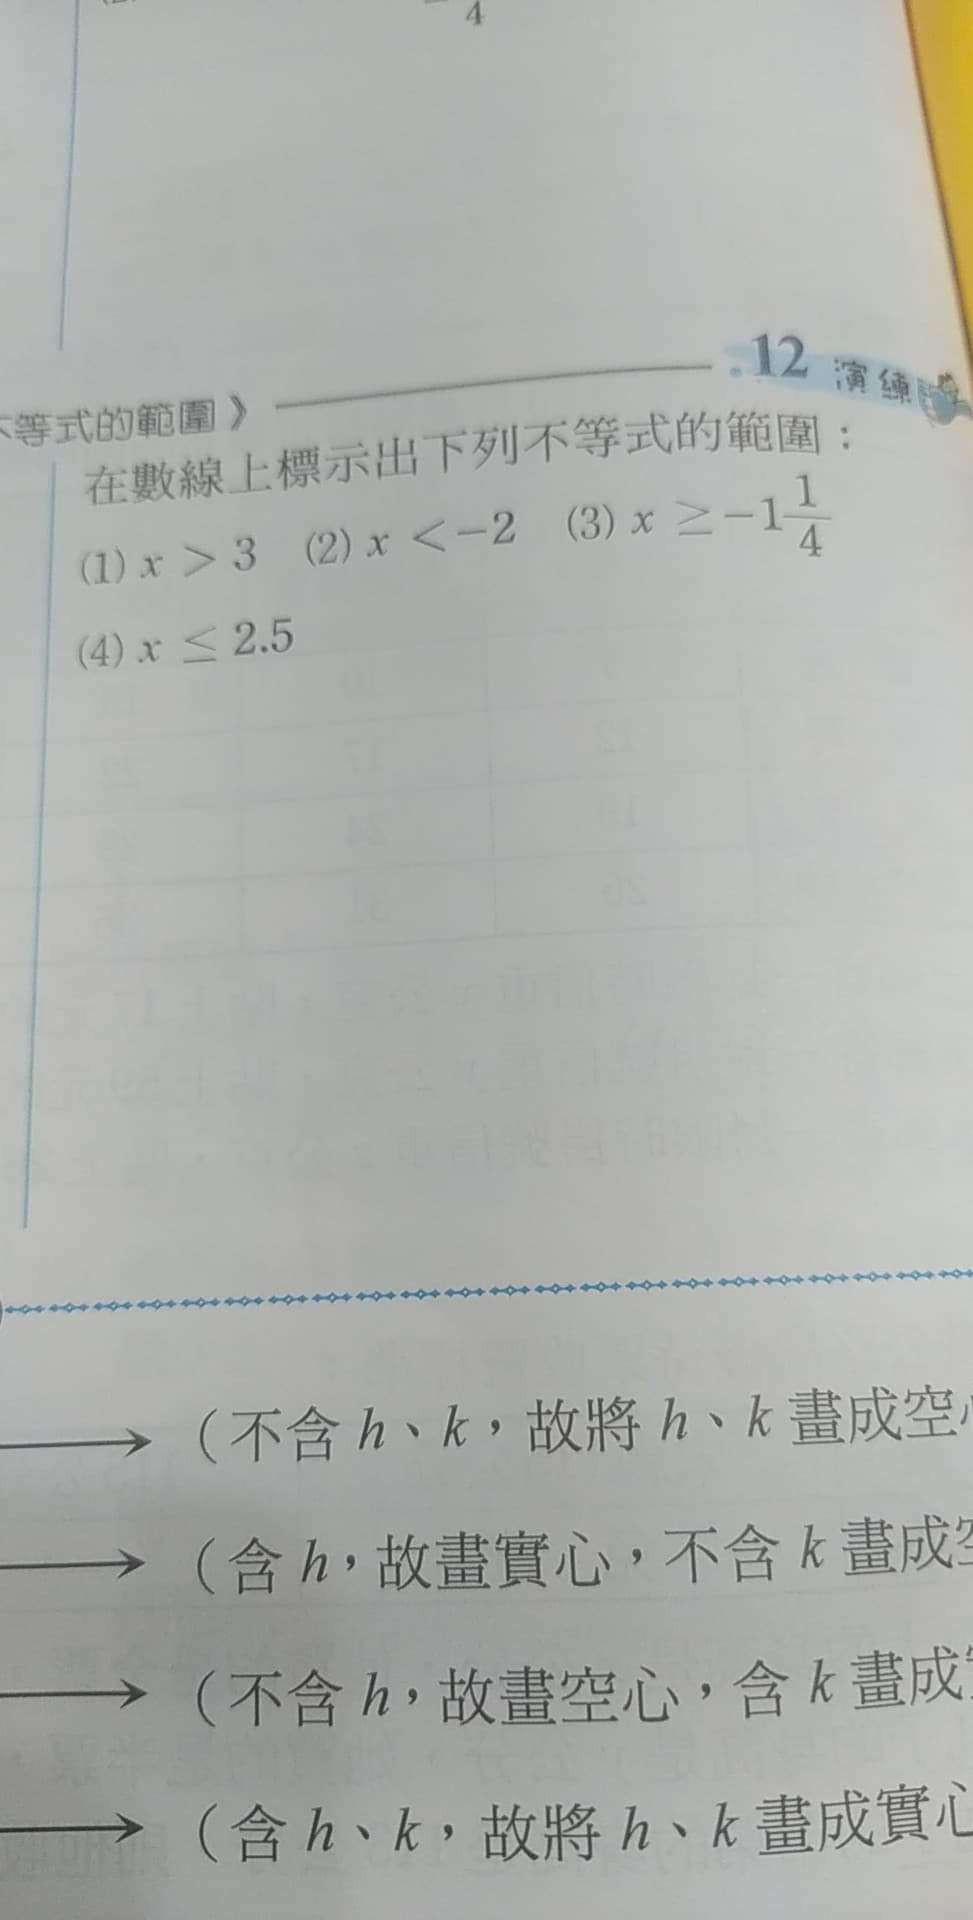 4
12 演練
等式的範圍》
在數線上標示出下列不等式的範圍：
(1) x > 3 (2) x < -2 (3) x ≥ -1 1/4
(4) x ≤ 2.5
（不含 h、k，故將 h、k 畫成空
（含 h，故畫實心，不含 k 畫成
（不含 h，故畫空心，含 k 畫成
（含 h、k，故將 h、k 畫成實心